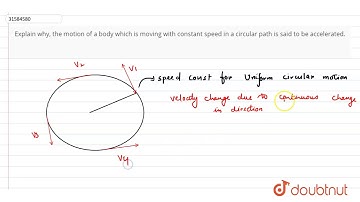 31584580
Explain why, the motion of a body which is moving with constant speed in a circular path is said to be accelerated.
V2
V1
speed const for Uniform circular motion
velocity change due to continuous change
in direction
V3
V4
doubtnut